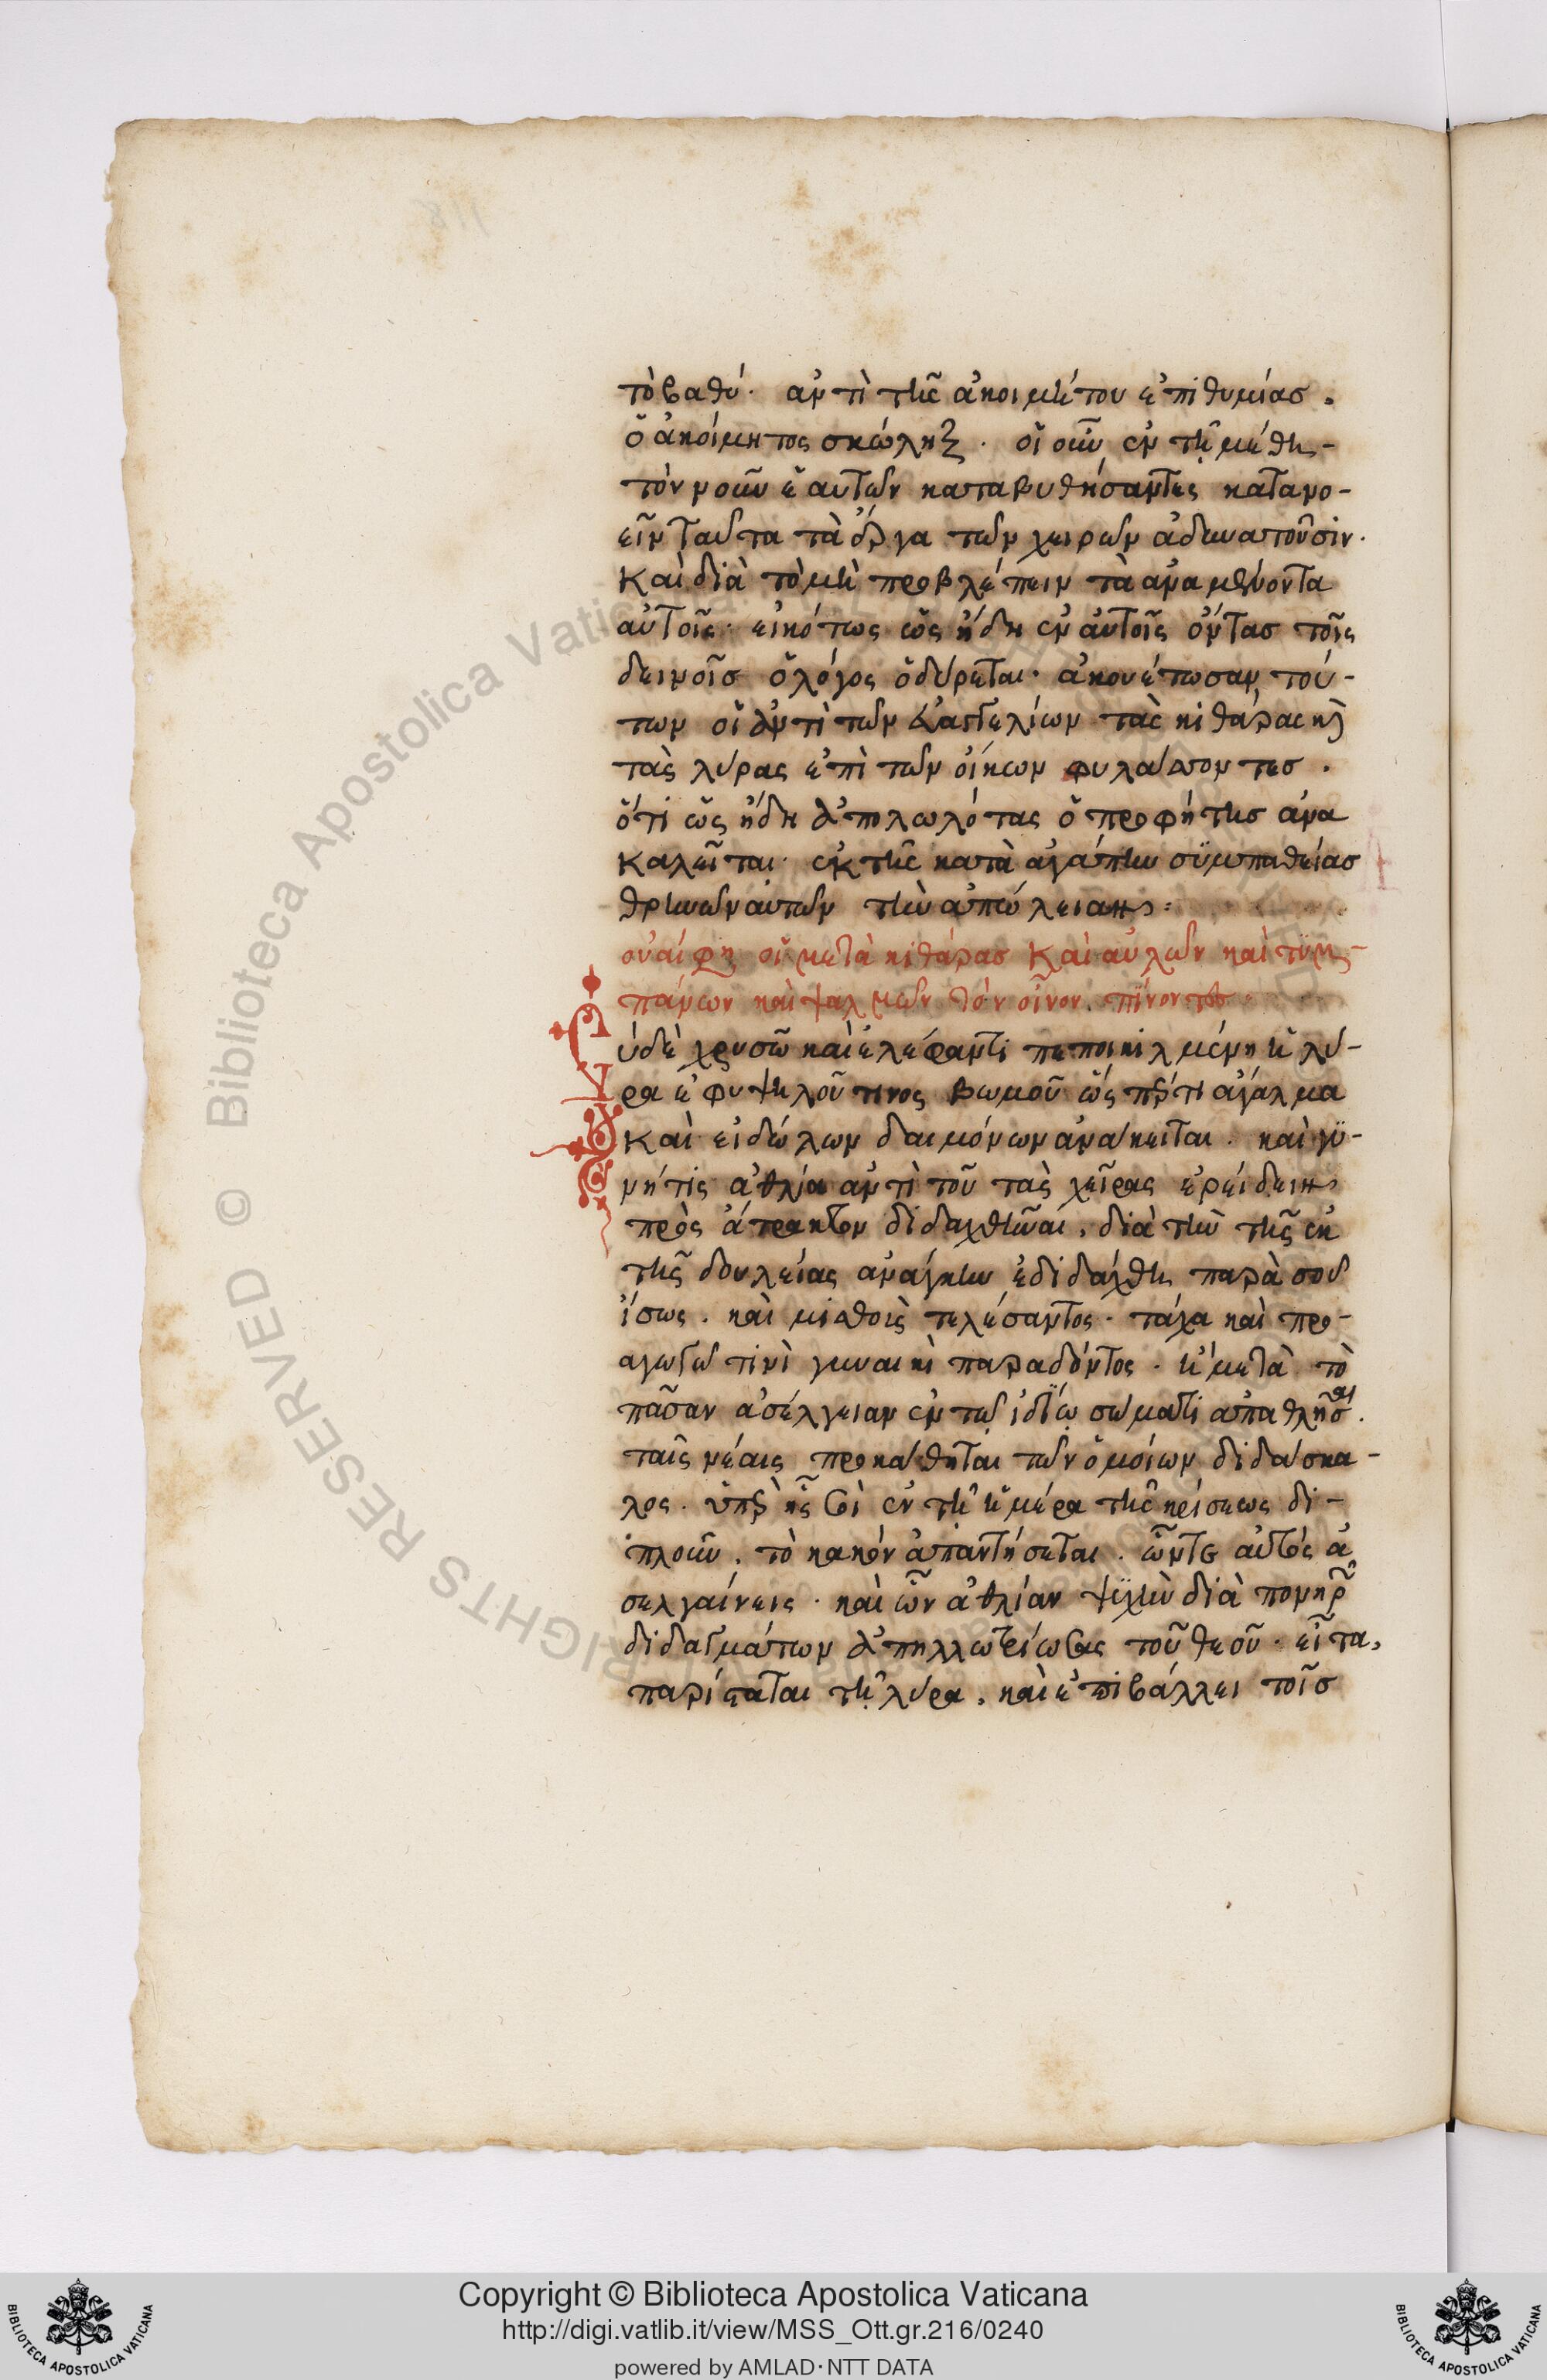 τὸ βαθύ· ἀντὶ τῆς ἀκοιμήτου ἐπιθυμίας.
ὁ ἀκοίμητος σκώληξ· οἱ οὖν ἐν τῇ μέθῃ-
τὸν νοῦν ἑαυτῶν καταβυθήσαντες κατανο-
εῖν ταῦτα τὰ ἔργα τῶν χειρῶν ἀδυνατοῦσιν.
Καὶ διὰ τὸ μὴ προβλέπειν τὰ ἀναμένοντα
αὐτοῖς· εἰκότως ὡς ἤδη ἐν αὐτοῖς ὄντας τοῖς
δεινοῖς ὁ λόγος ὀδύρεται· ἀκουέτωσαν τού-
των οἱ ἀντὶ τῶν εὐαγγελίων τὰς κιθάρας κ̀
τὰς λύρας ἐπὶ τῶν οἴκων φυλάσσοντες.
ὅτι ὡς ἤδη ἀπολωλότας ὁ προφήτης ἀνα
καλεῖται· ἐκ τῆς κατὰ ἀγάπην συμπαθείας
θρηνῶν αὐτῶν τὴν ἀπώλειαν:
οὐαί φη οἱ μετὰ κιθάρας Καὶ αὐλῶν καὶ τυμ-
πάνων καὶ ψαλμῶν τὸν οἶνον πίνοντες
ὑ δὲ χρυσῶ καὶ ἐλέφαντι πεποικιλμένη ἡ λύ-
ρα ἐφ υψηλοῦ τινος βωμοῦ ὥσπερ τι ἄγαλμα
Καὶ εἰδώλων δαιμόνων ἀνάκειται· καὶ γυ-
νή τις ἀθλία ἀντὶ τοῦ τὰς χεῖρας ἐρείδειν
πρὸς ἄτρακτον διδαχθῆναι, διὰ τὴν τῆς ἐκ
τῆς δουλείας ἀνάγκην ἐδιδάχθη παρὰ σοῦ
ἴσως. καὶ μισθοὺς τελέσαντος· τάχα καὶ προ-
αγωγῶ τινὶ γυναικὶ παραδόντος· ἡ μετὰ τὸ
πᾶσαν ἀσέλγειαν ἐν τῷ ἰδίῳ σώματι ἀπαθλῆσαι.
ταῖς νέαις προκάθηται τῶν ὁμοίων διδάσκα-
λος. ὑπὲρ ἧς σὶ ἐν τῇ ἡμέρα τῆς κρίσεως δι-
πλοῦν. τὸ κακὸν ἀπαντήσεται. ὧντε αὐτὸς ἀ
σελγαίνεις· καὶ ὧν ἀθλίαν ψυχὴν διὰ πονηρ
διδαγμάτων ἀπηλλωτρίωσας τοῦ θεοῦ· εἶτα,
παρίσταται τῇ λύρα, καὶ ἐπιβάλλει τοῖς
Copyright © Biblioteca Apostolica Vaticana
http://digi.vatlib.it/view/MSS_Ott.gr.216/0240
powered by AMLAD·NTT DATA